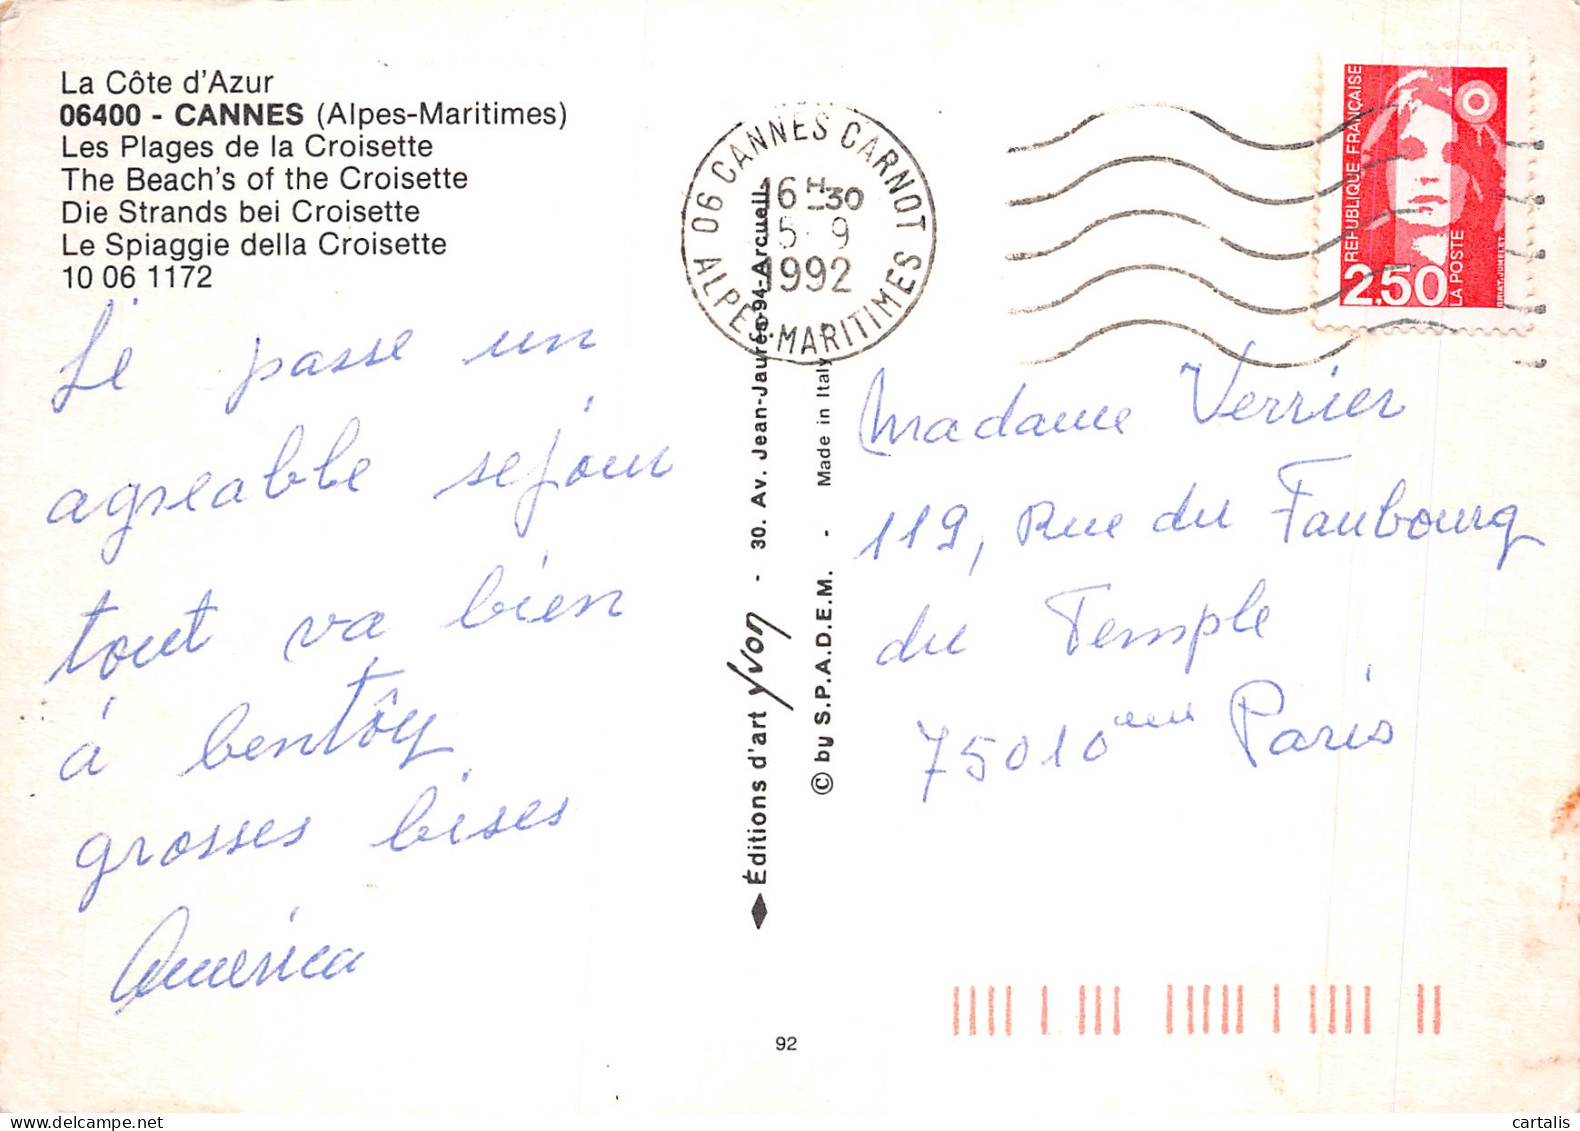 La Côte d'Azur
06400 - CANNES (Alpes-Maritimes)
Les Plages de la Croisette
The Beach's of the Croisette
Die Strands bei Croisette
Le Spiaggie della Croisette
10 06 1172
Je passe un
agreable sejour
tout va bien
à bentôy
grosses bises
América
Éditions d'art Yvon - 30. Av. Jean-Jaurès-94-Arcueil
© by S.P.A.D.E.M. - Made in Italy
92
06 CANNES CARNOT
16 H 30
5-9
1992
ALPES-MARITIMES
RÉPUBLIQUE FRANÇAISE
2,50
LA POSTE
BRIAT.JUMELET
Madame Verrier
119, Rue du Faubourg
du Temple
75010eme Paris
cartalis